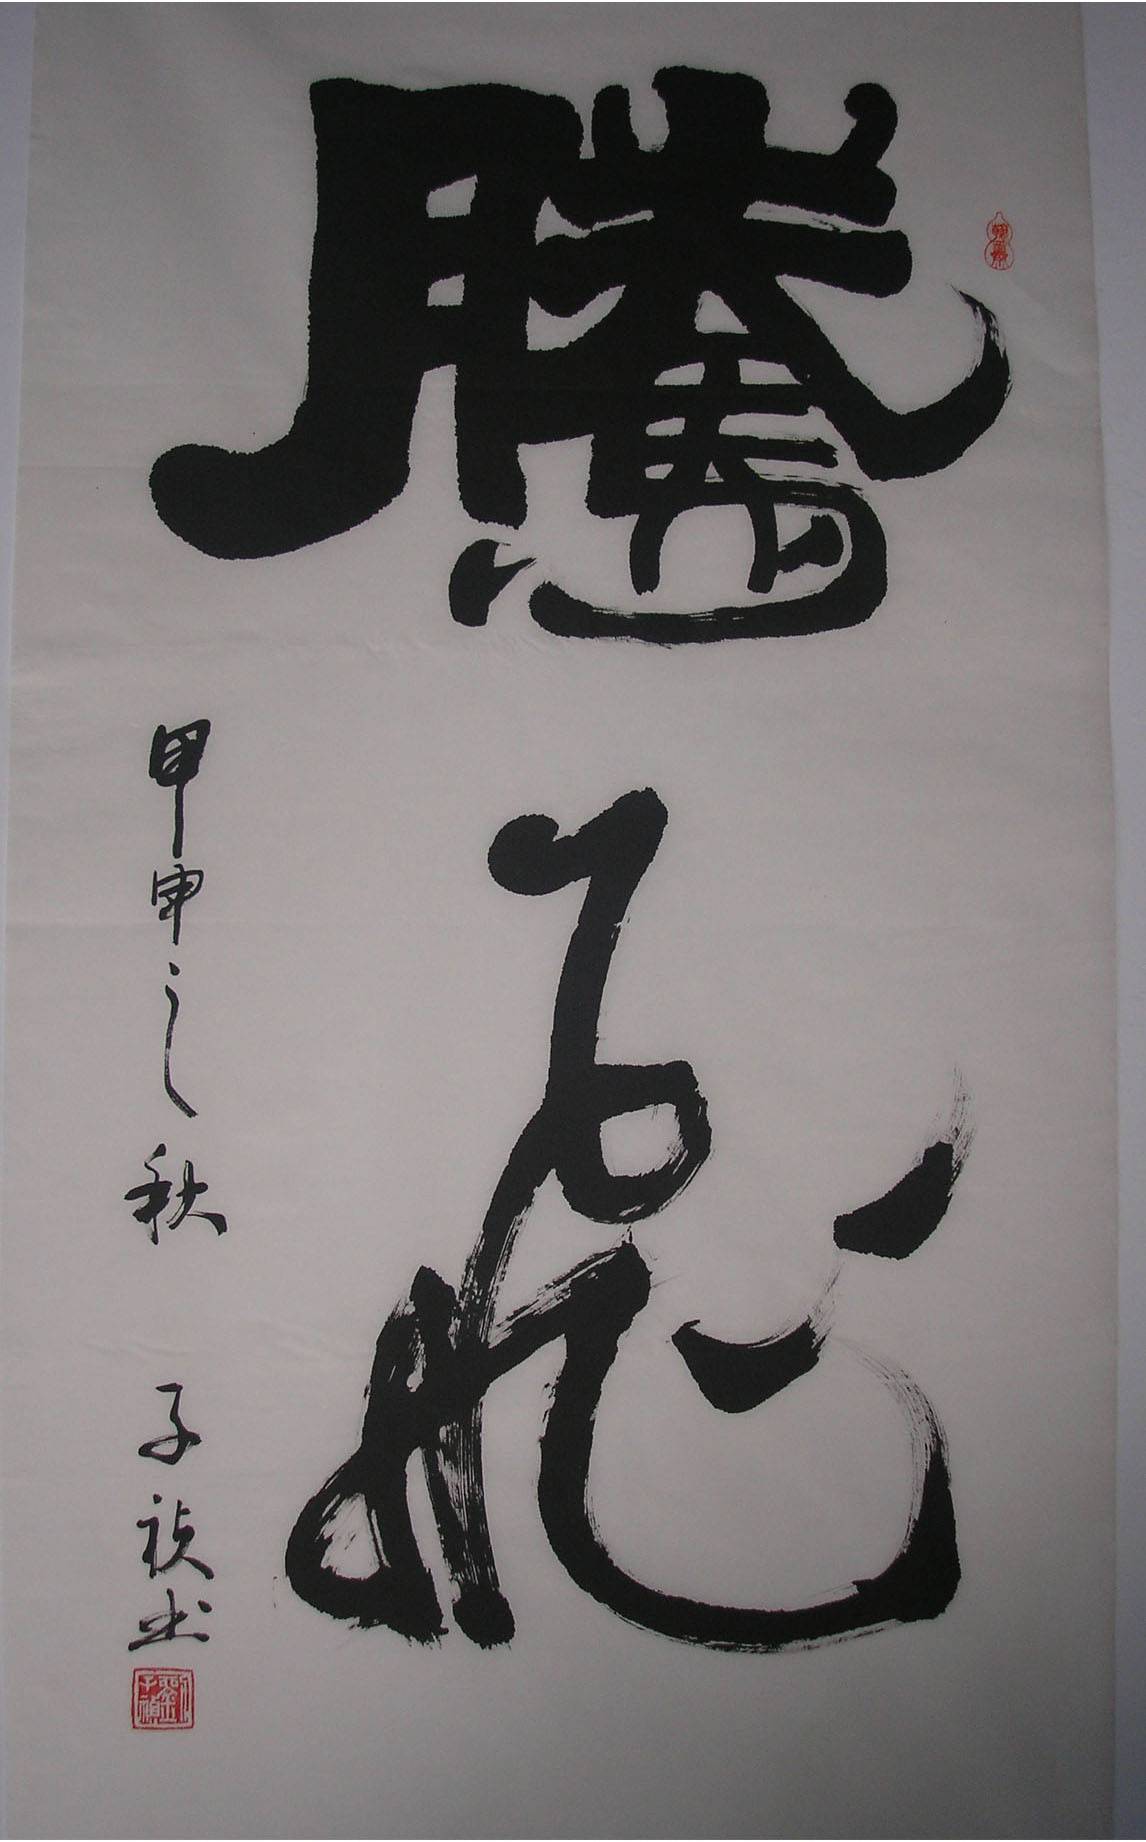 騰飛
甲申之秋 子祯书